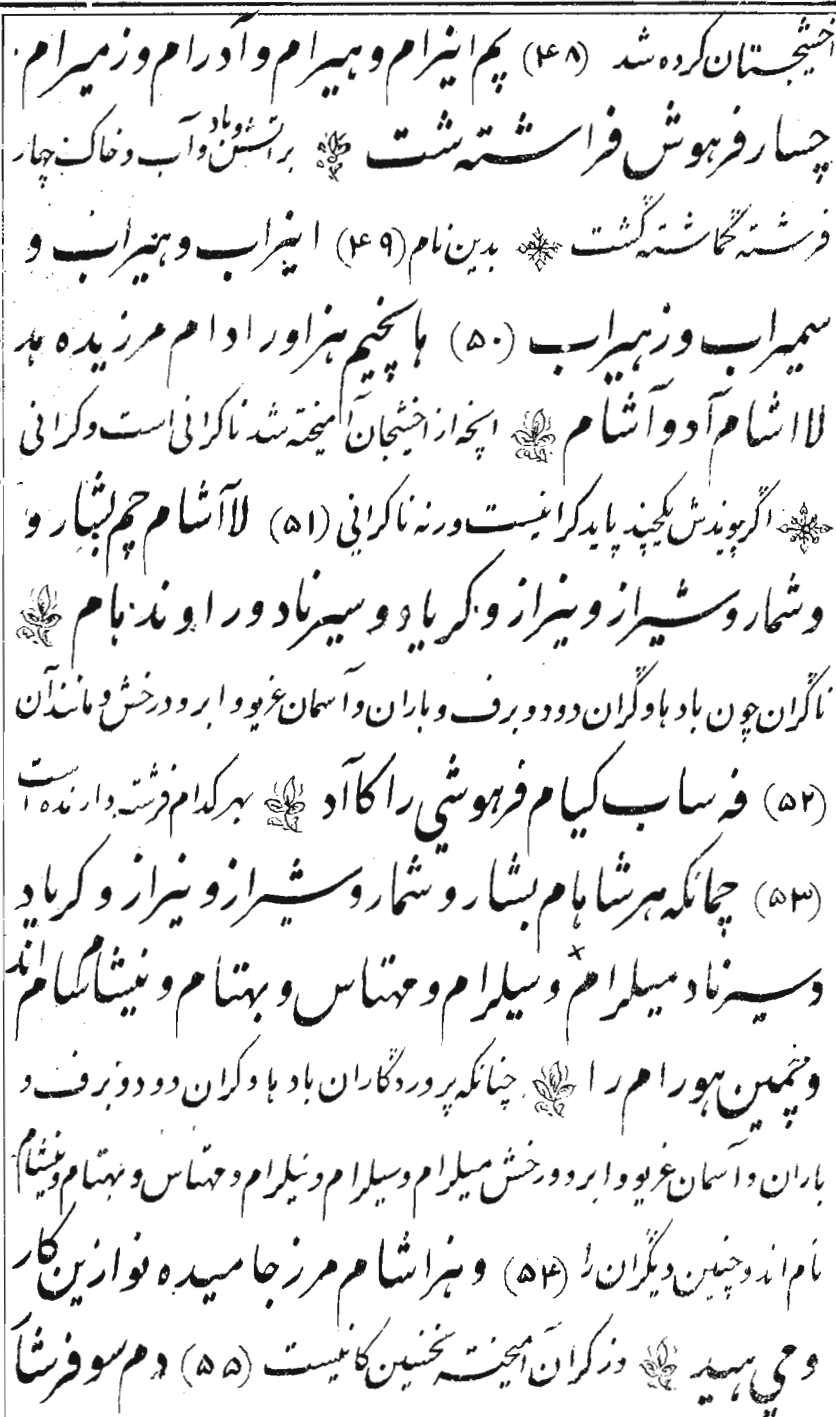 اخشیجستان کرده شد (۴۸) پم اینرام و هیرام و آدرام و زمیرام
چسار فرهوش فراشته شت براتش و باد و آب و خاک چهار
فرشته گماشته گشت بدین نام (۴۹) اینراب و هنیراب و
سمیراب و زهیراب (۵۰) هاپخیم هزاور ادام مرزیده هد
لا اشام آد و آشام انچه از اخشیجان آمیخته شد ناکرانی است و کرانی
اگر پیوندش یکچند پاید کرانیست ورنه ناکرانی (۵۱) لاآشام چم بشار و
وشمار و شیراز و نیراز و کریاد و سیرناد و راوند هام
ناگران چون باد ها و گران دود و برف و باران و آسمان غریو و ابر و درخش و مانند آن
(۵۲) فه ساب کیام فرهوشی را کاآد بهر کدام فرشته دارنده است
(۵۳) چمانکه هرشا هام بشار و شمار و شیراز و نیراز و کریاد
و سیرناد میلرام و سیلرام و مهتاس و بهتام و نیشام سام اند
و خمین هورام را چنانکه پروردگاران باد ها و کران دود و برف و
باران و آسمان غریو و ابر و درخش میلرام و سیلرام و نیلرام و مهتاس و بهتام و نیشام
نام اند و چنین دیگران را (۵۴) و هزاشام مرزجامیده نوازین کار
و حی هید وز کران آمیخته نخستین کانیست (۵۵) دم سو فرشا